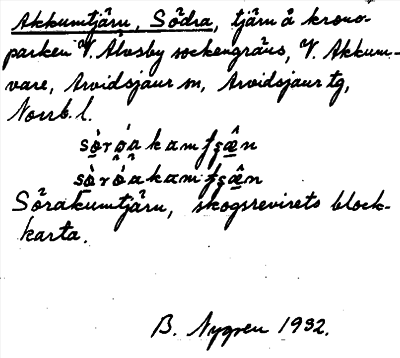 Akkumtjärn, Södra, tjärn å krono-
parken V. Älvsby sockengräns, V. Akkum-
vare, Arvidsjaur sn, Arvidsjaur tg,
Norrb. l.
Sörakumtjärn, skogsrevirets block-
karta.
B. Nygren 1932.